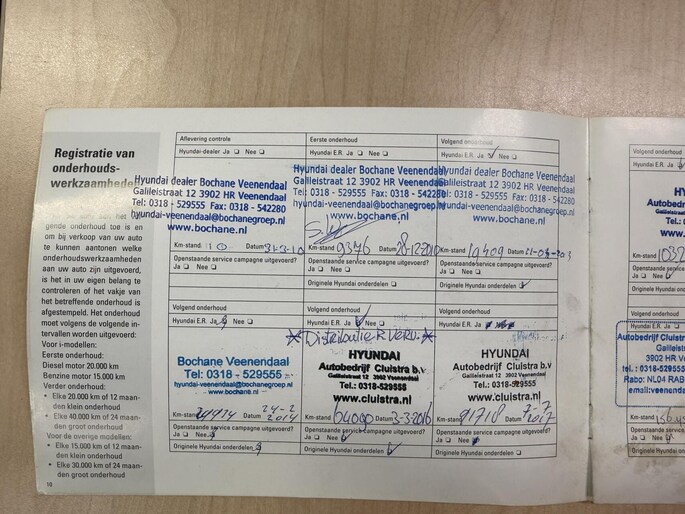 Registratie van
onderhouds-
werkzaamheden
gende onderhoud toe is en
om bij verkoop van uw auto
te kunnen aantonen welke
onderhoudswerkzaamheden
aan uw auto zijn uitgevoerd,
is het in uw eigen belang te
controleren of het vakje van
het betreffende onderhoud is
afgestempeld. Het onderhoud
moet volgens de volgende in-
tervallen worden uitgevoerd:
Voor i-modellen:
Eerste onderhoud:
Diesel motor 20.000 km
Benzine motor 15.000 km
Verder onderhoud:
• Elke 20.000 km of 12 maan-
den klein onderhoud
• Elke 40.000 km of 24 maan-
den groot onderhoud
Voor de overige modellen:
• Elke 15.000 km of 12 maan-
den klein onderhoud
• Elke 30.000 km of 24 maan-
den groot onderhoud
10
Aflevering controle
Hyundai-dealer Ja ❑ Nee ❑
Hyundai dealer Bochane Veenendaal
Galileistraat 12 3902 HR Veenendaal
Tel: 0318 - 529555 Fax: 0318 - 542280
hyundai-veenendaal@bochanegroep.nl
www.bochane.nl
Km-stand 10 Datum
Openstaande service campagne uitgevoerd?
Ja ❑ Nee ❑
Eerste onderhoud
Hyundai E.R. Ja ❑ Nee ❑
Hyundai dealer Bochane Veenendaal
Galileistraat 12 3902 HR Veenendaal
Tel: 0318 - 529555 Fax: 0318 - 542280
hyundai-veenendaal@bochanegroep.nl
www.bochane.nl
Km-stand 9376 Datum 28-12-2010
Openstaande service campagne uitgevoerd?
Ja ❑ Nee ❑
Originele Hyundai onderdelen ❑
Volgend onderhoud
Hyundai E.R. Ja Nee ❑
Hyundai dealer Bochane Veenendaal
Galileistraat 12 3902 HR Veenendaal
Tel: 0318 - 529555 Fax: 0318 - 542280
hyundai-veenendaal@bochanegroep.nl
www.bochane.nl
Km-stand 19409 Datum
Openstaande service campagne uitgevoerd?
Ja Nee ❑
Originele Hyundai onderdelen
Volgend onderhoud
Hyundai E.R. Ja Nee ❑
Bochane Veenendaal
Tel: 0318 - 529555
hyundai-veenendaal@bochanegroep.nl
www.bochane.nl
Km-stand Datum 24-2
2014
Openstaande service campagne uitgevoerd?
Ja ❑ Nee
Originele Hyundai onderdelen
Volgend onderhoud
Hyundai E.R. Ja Nee ❑
Distributie R Verv.
HYUNDAI
Autobedrijf Cluistra b.v.
Galileistraat 12 3902 Veenendaal
Tel.: 0318-529555
www.cluistra.nl
Km-stand 64000 Datum 3-3-2016
Openstaande service campagne uitgevoerd?
Ja ❑ Nee
Originele Hyundai onderdelen
Volgend onderhoud
Hyundai E.R. Ja
HYUNDAI
Autobedrijf Cluistra b.v
Galileistraat 12 3902 Veenendaal
Tel.: 0318-529555
www.cluistra.nl
Km-stand 91718 Datum 7-7
2017
Openstaande service campagne uitgevoerd?
Ja ❑ Nee
Originele Hyundai onderdelen ❑
Volgend onderhoud
Hyundai E.R. Ja
Hyundai
Galile
Tel: 0318
hyundai
Km-stand
Openstaande
Ja Nee ❑
Originele Hy
Volgend onderh
Hyundai E.R. Ja
Autobedrijf Cluistra
Galileistraat
3902 HR
tel.: 0318 - 5295
Rabo: NL04 RAB
email:veenendaal
Km-stand
Openstaande
Ja Nee
Originele Hy